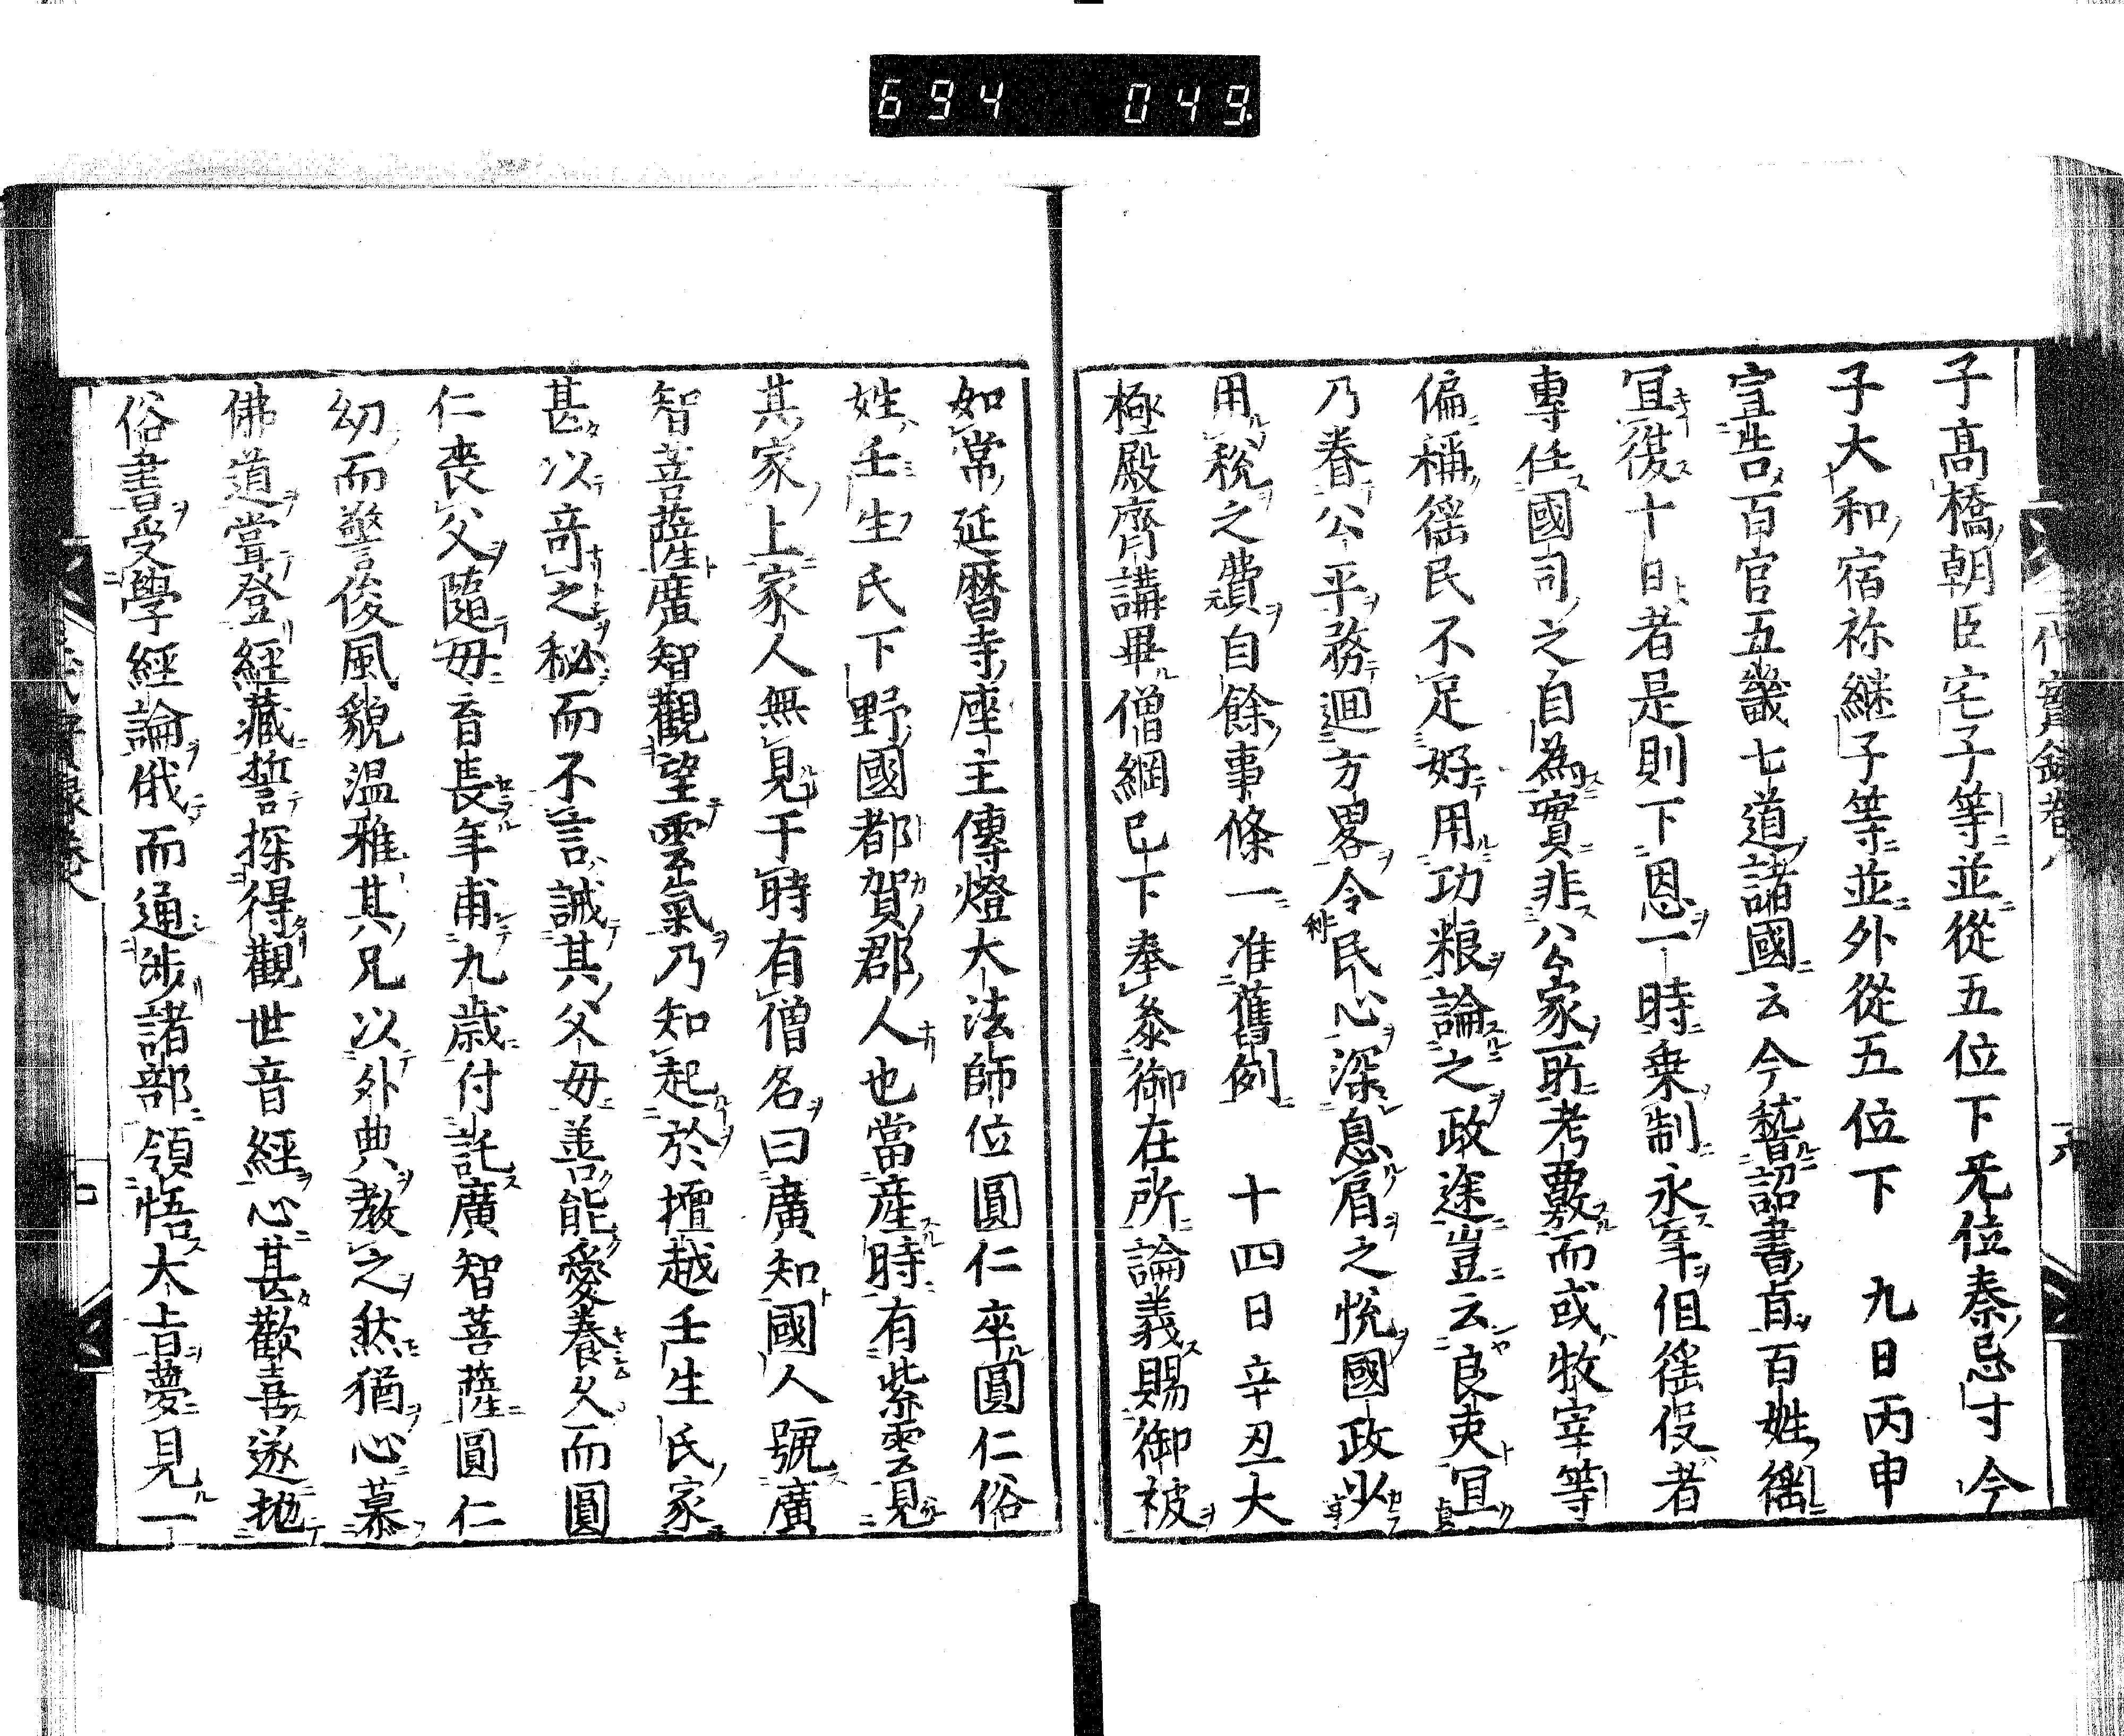 694 049
子高橋朝臣宅子等並從五位下无位秦忌寸今
子大和宿祢継子等並外從五位下　九日丙申
宣告百官五畿七道諸國云今暫詔書貞百姓徭
冝復十日者是則下恩一時乗制永年但徭伇者
專任國司之自為實非公家所考覈而或牧宰等
偏稱徭民不足好用功粮論之政途豈云良吏冝
乃眷公平務廻方畧令民心深息肩之悦國政以
用税之費自餘事條一准舊例　十四日辛丑大
極殿齊講畢僧綱已下奉参御在所論義賜御被
如常延暦寺座主傳燈大法師位圓仁卒圓仁俗
姓壬生氏下野國都賀郡人也當産時有紫雲見
其家上家人無見于時有僧名曰廣知國人號廣
智菩薩廣智觀望雲氣乃知起於擅越壬生氏家
甚以竒之秘而不言誡其父毋善能愛養久而圓
仁喪父隨毋育長年甫九歳付託廣智菩薩圓仁
幼而警俊風貌温雅其兄以外典教之然猶心慕
佛道甞登經藏誓探得觀世音經心甚歡喜遂抛
俗書受學經論俄而通渉諸部領悟大旨夢見一